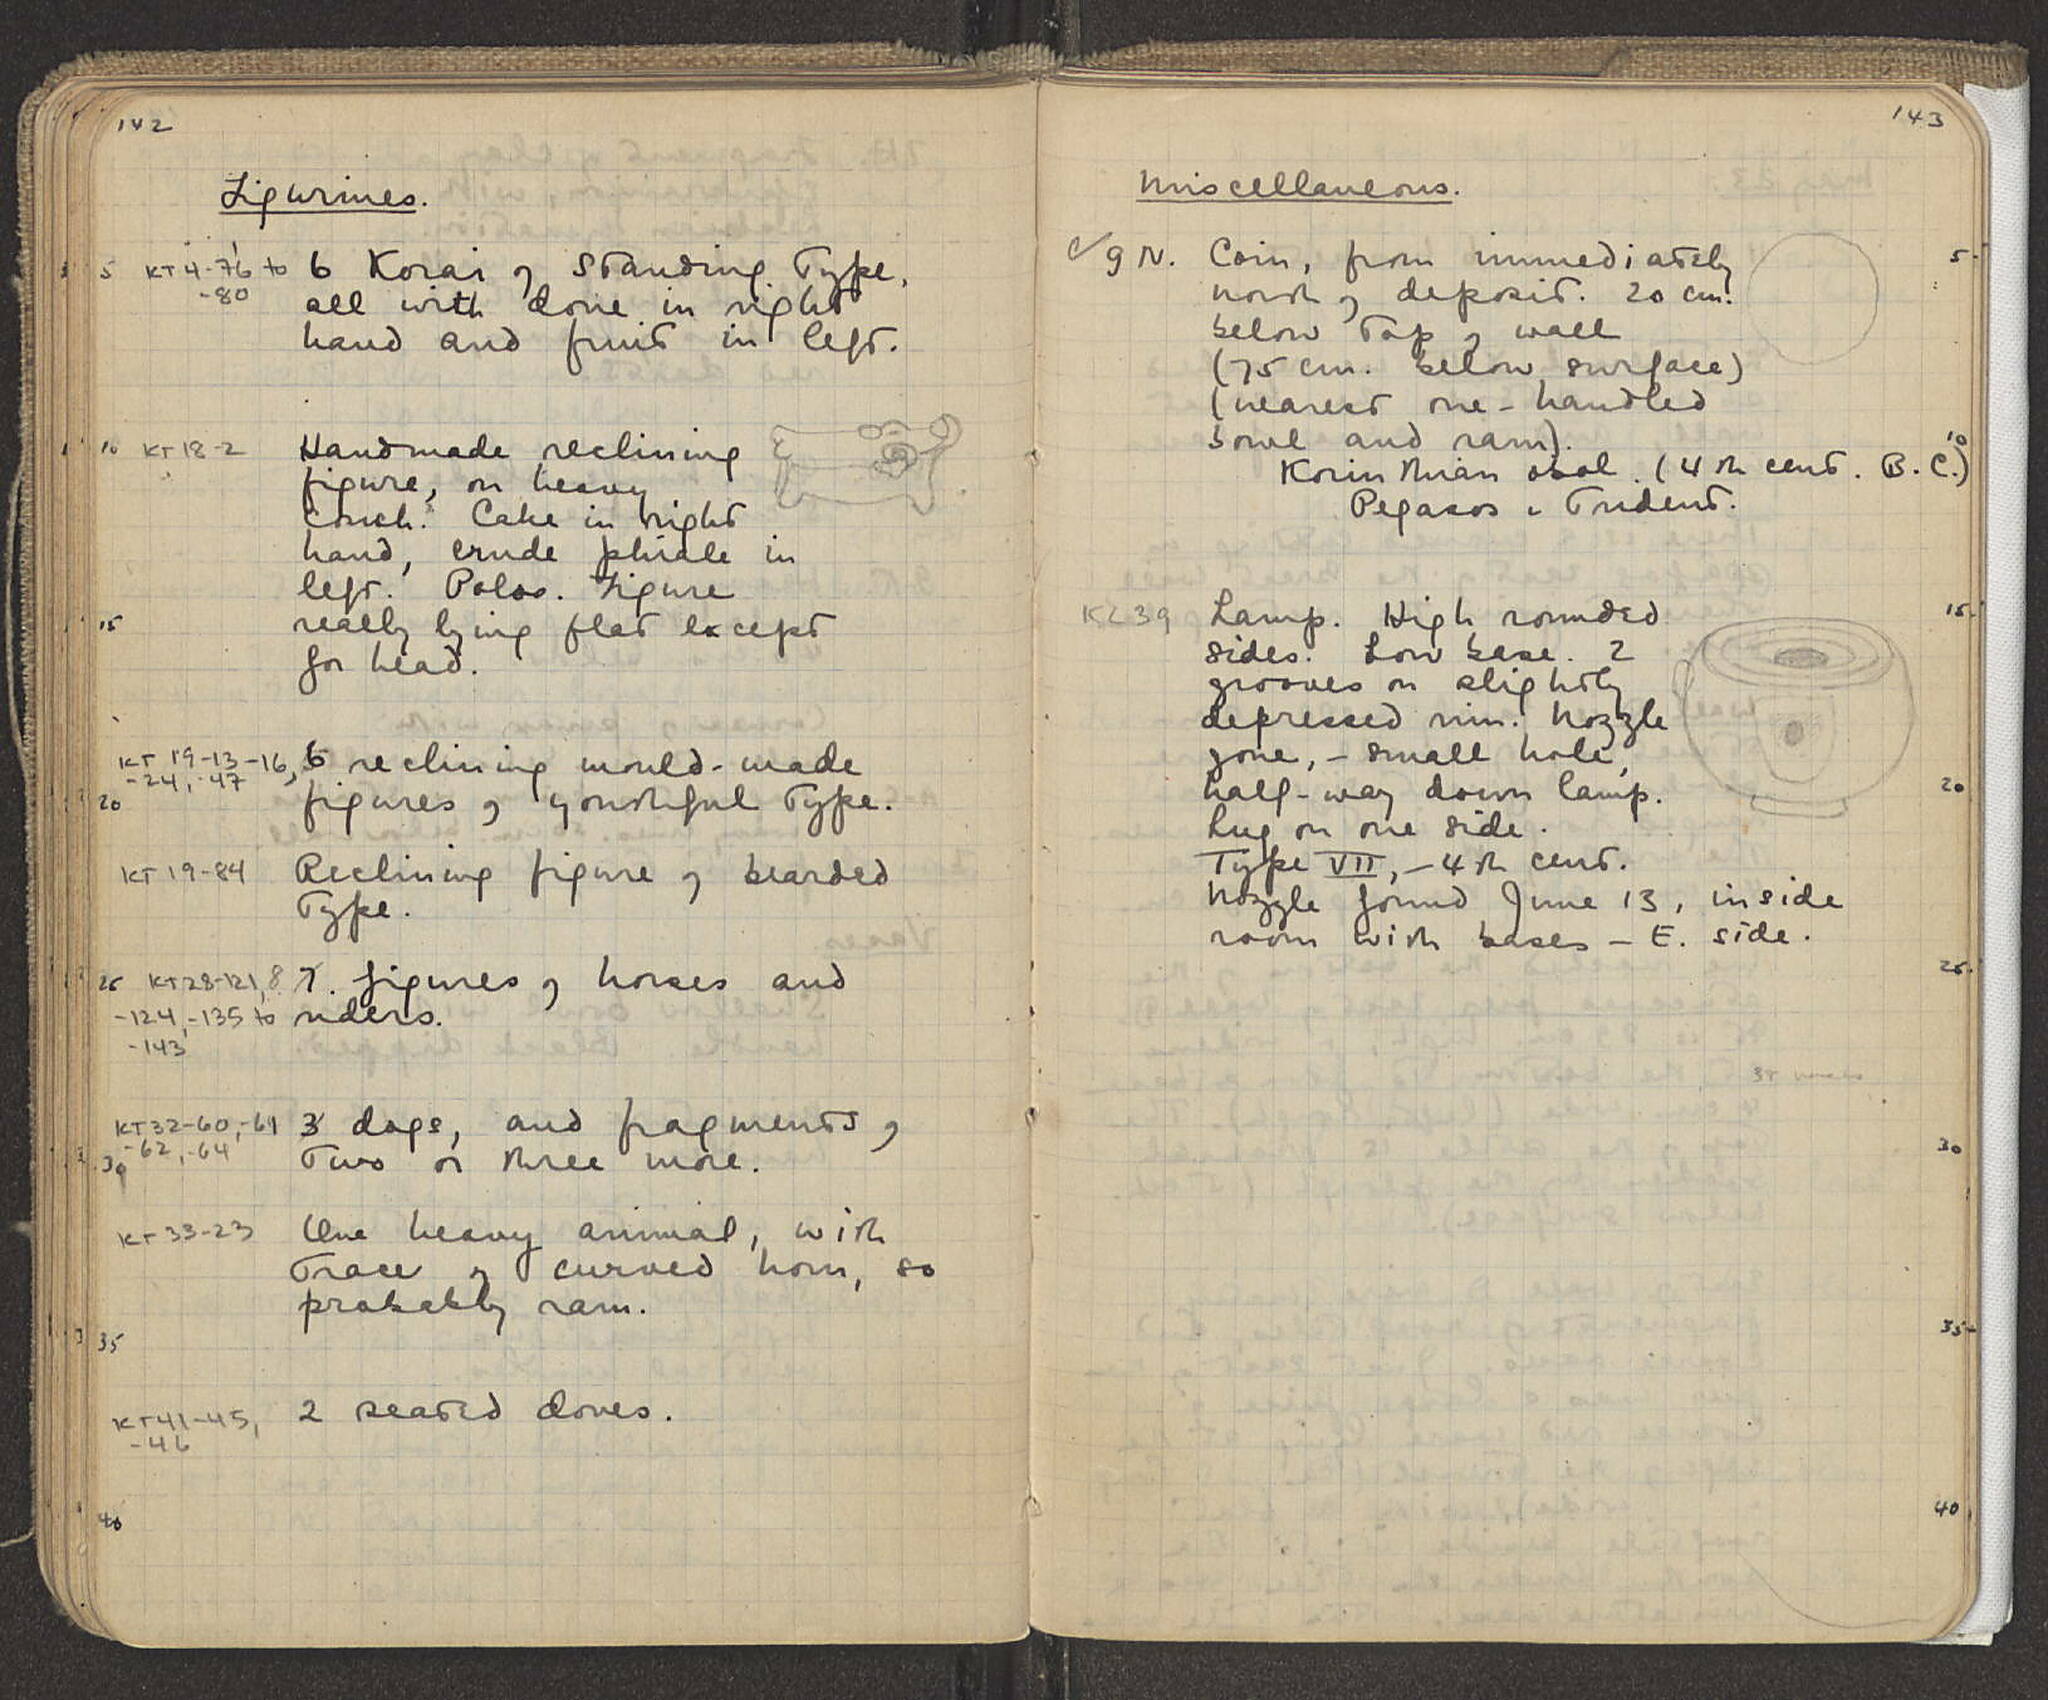 142
Figurines.
5 KT4-76 to 6 Korai of standing type,
-80 all with dove in right
hand and fruit in left.
10 KT18-2 Handmade reclining
figure, on heavy
couch. Cake in right
hand, crude phiale in
left. Polos. Figure
15 really lying flat except
for head.
KT 19-13-16, 6 reclining mould-made
-24, -47
20 figures of youthful type.
KT19-84 Reclining figure of bearded
type.
25 KT28-121, 8 7. figures of horses and
-124, -135 to riders.
-143
KT32-60, -61 3 dogs, and fragments of
-62, -64
30 two or three more.
KT33-23 One heavy animal, with
trace of curved horn, so
probably ram.
35
KT41-45, 2 seated doves.
-46
40
143
Miscellaneous.
c/ 9 N. Coin, from immediately 5
north of deposit. 20 cm.
below top of wall
(75 cm. below surface)
(nearest one-handled
bowl and ram). 10
Korinthian obol. (4th cent. B.C.)
Pegasos : Trident.
KL39 Lamp. High rounded 15
sides. Low base. 2
grooves on slightly
depressed rim. Nozzle
gone, - small hole,
half-way down lamp. 20
Lug on one side.
Type VII, - 4th cent.
Nozzle found June 13, inside
room with bases - E. side.
25
30
35
40